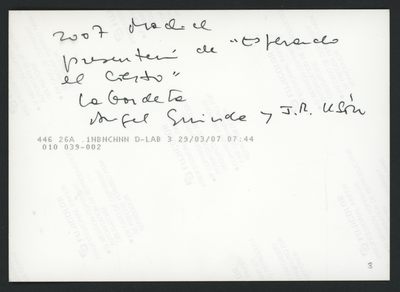 2007 Madrid
presentación de "Esperando
el Cierzo"
Labordeta
Angel Guinda y J.R. Usón
446 26A .1NBHCHNN D-LAB 3 29/03/07 07:44
010 039-002
3